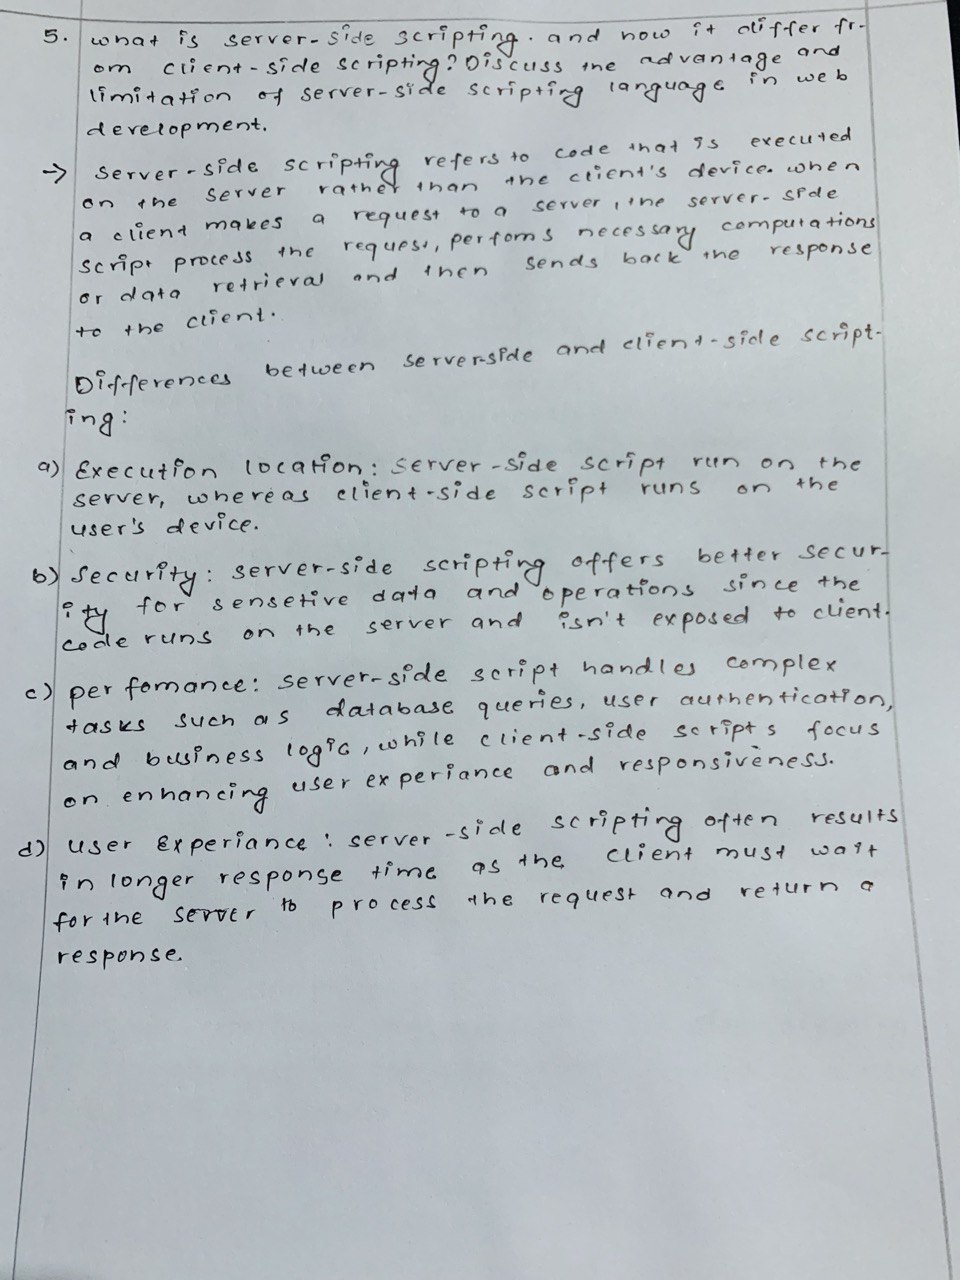 5. what is server-side scripting. and how it differ fr-
om client-side scripting? Discuss the advantage and
limitation of server-side scripting language in web
development.
→ server-side scripting refers to code that is executed
on the server rather than the client's device. when
a client makes a request to a server, the server-side
script process the request, perfoms necessary computations
or data retrieval and then sends back the response
to the client.
Differences between serverside and client-side script-
ing:
a) Execution location: server-side script run on the
server, whereas client-side script runs on the
user's device.
b) Security: server-side scripting offers better secur-
ity for sensetive data and operations since the
code runs on the server and isn't exposed to client.
c) perfomance: server-side script handles complex
tasks such as database queries, user authentication,
and business logic, while client-side scripts focus
on enhancing user experiance and responsiveness.
d) user Experiance: server-side scripting often results
in longer response time as the client must wait
for the server to process the request and return a
response.